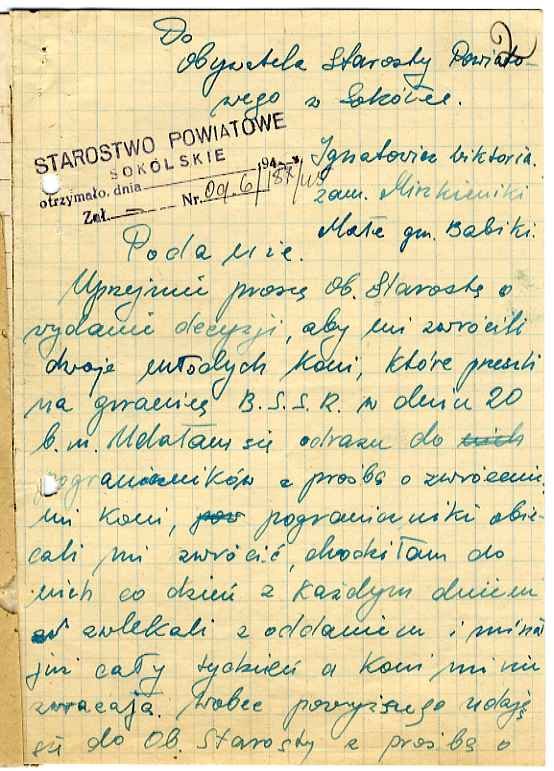 2
Do
Obywatela Starosty Powiato-
wego w Sokółce.
STAROSTWO POWIATOWE
SOKÓLSKIE
otrzymało, dnia 194 r.
Zał. Nr. 09.6/187/
Ignatowicz Wiktoria.
zam. Miszkieniki
Małe gm. Babiki.
Podanie.
Uprzejmie proszę Ob. Starostę o
wydanie decyzji, aby mi zwrócili
dwoje młodych koni, które przeszli
na granicę B.S.S.R. w dniu 20
b.m. Udałam się odrazu do nich
pograniczników z prośbą o zwrócenie
mi koni, pow pograniczniki obie-
cali mi zwrócić, chodziłam do
nich co dzień z każdym dniem
zwlekali z oddaniem i minął
już cały tydzień a koni mi nie
zwracają. Wobec powyższego udaję
się do Ob. Starosty z prośbą o